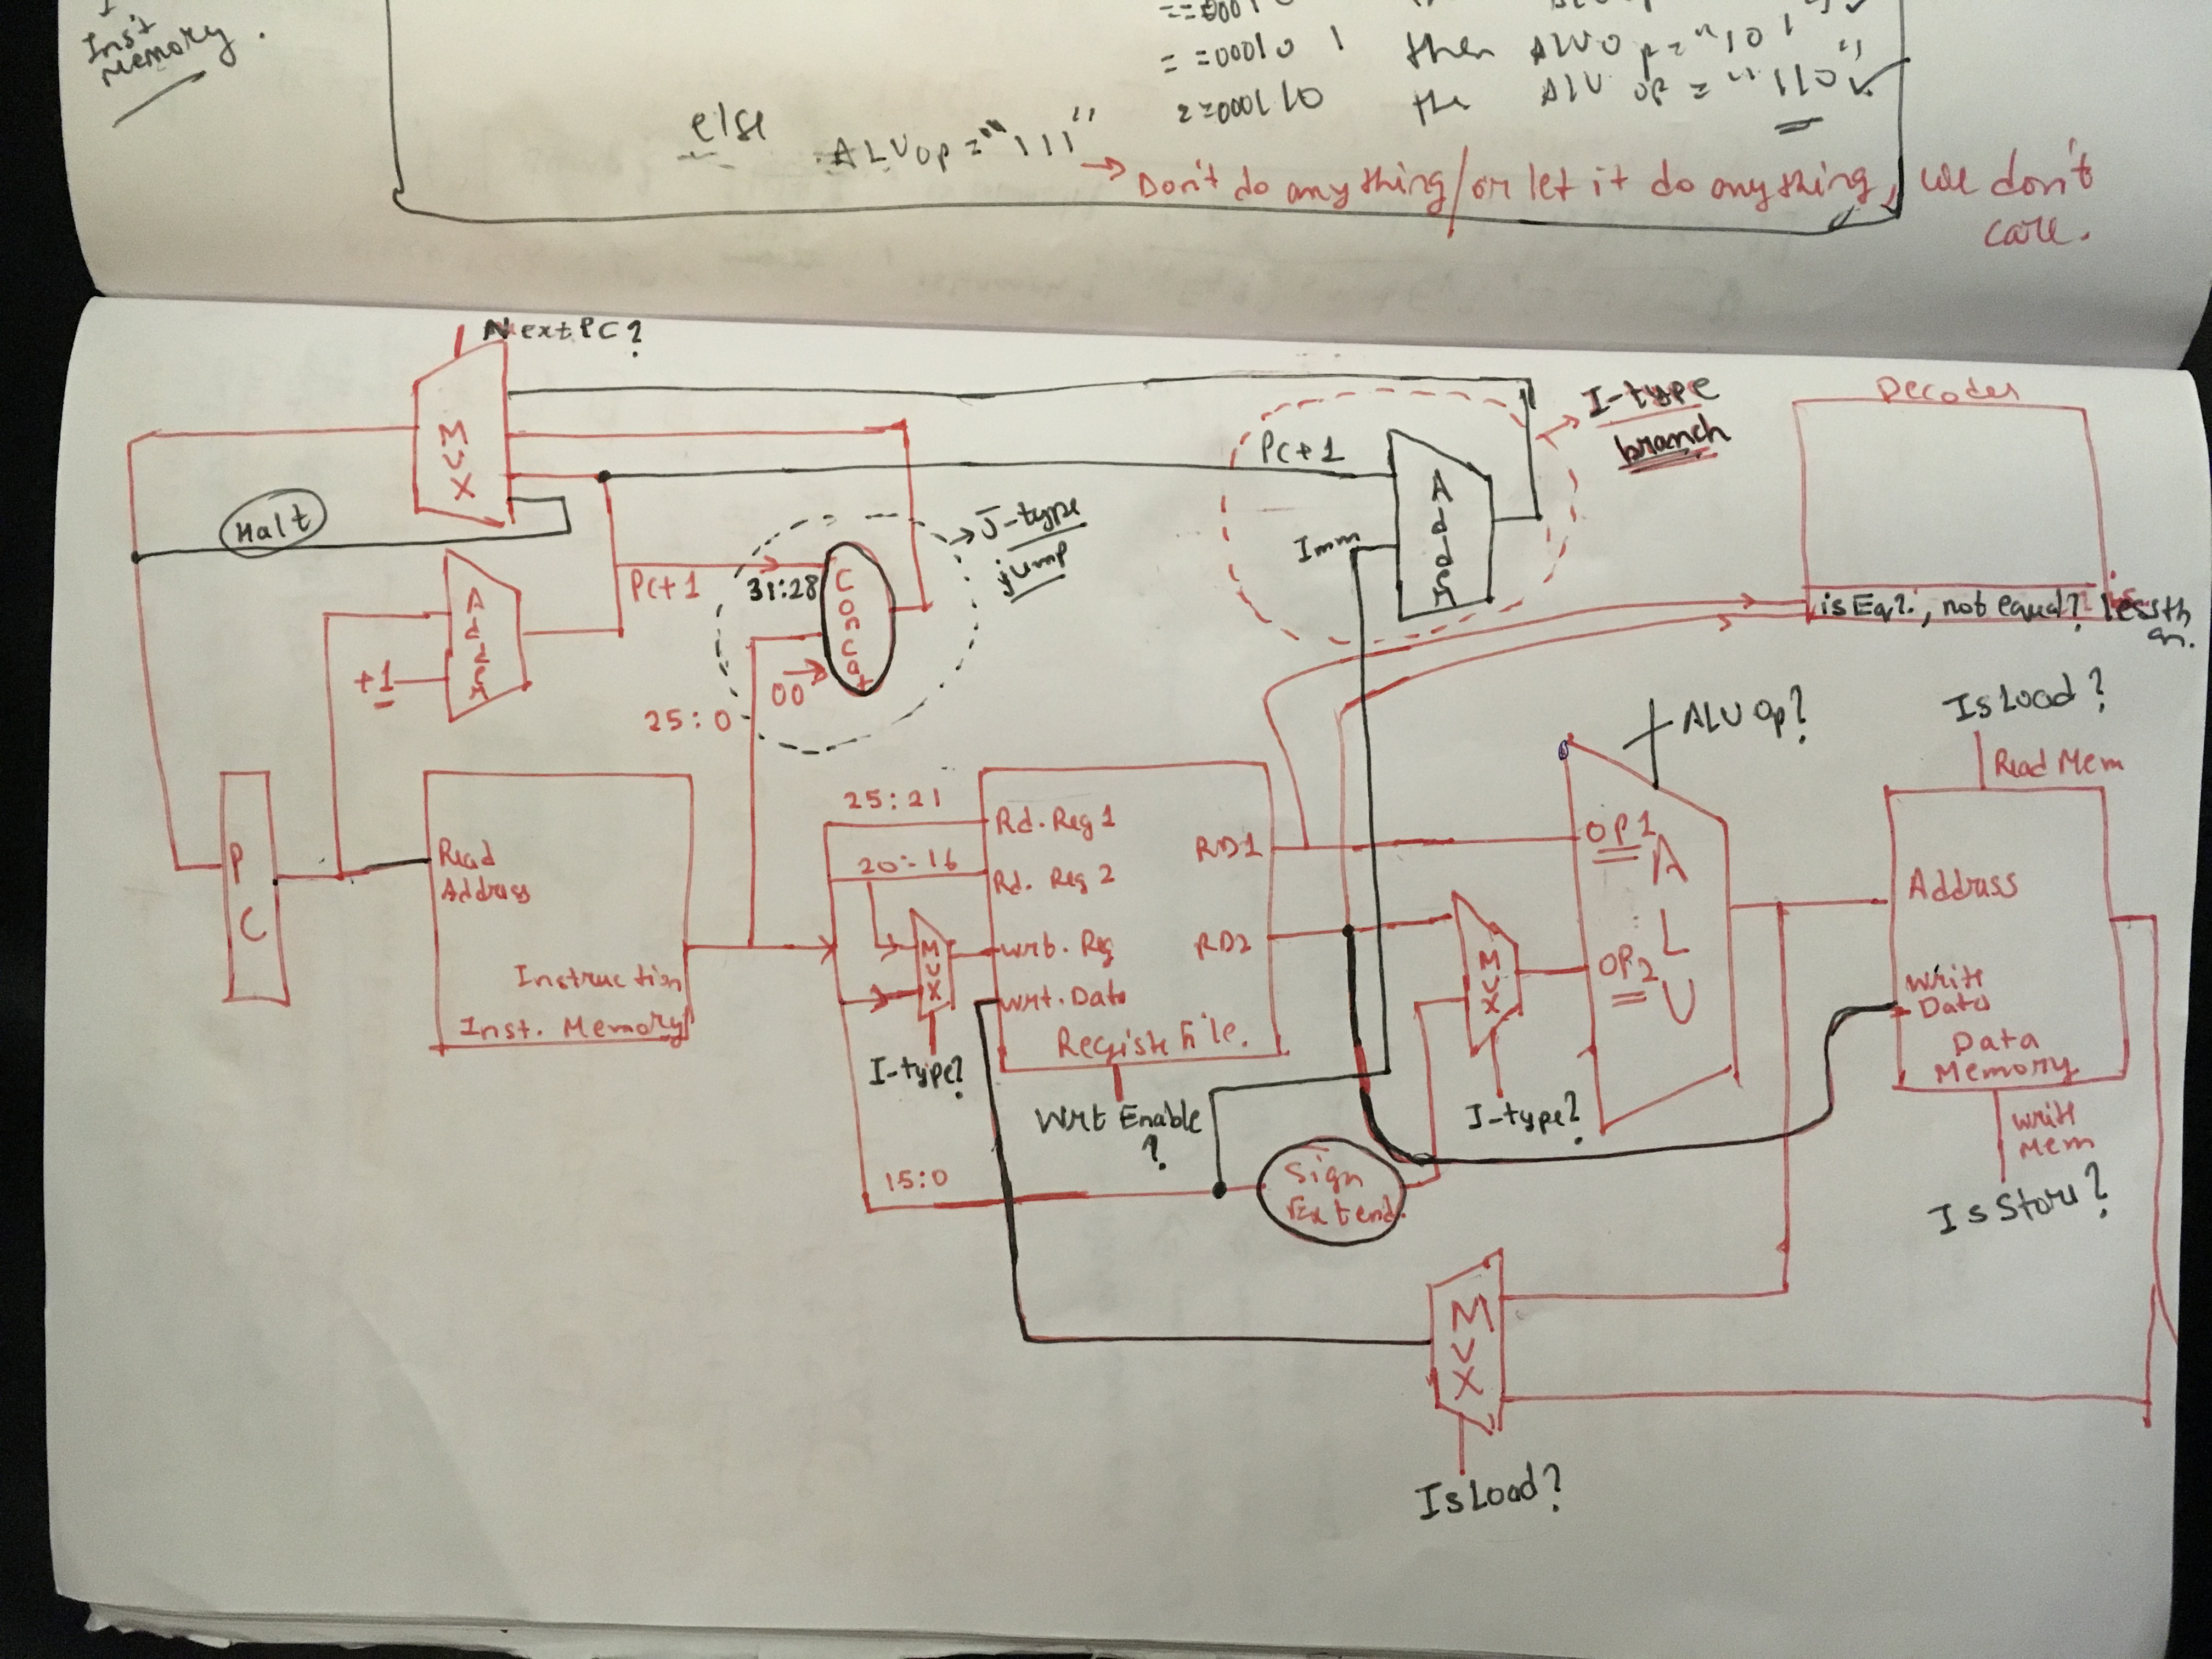 Inst
Memory.
= =00010 1 then ALUOp="101"
==000110 the ALUOp="110"
else ALUOp="111"
Don't do anything/or let it do anything, we don't
care.
NextPC?
MUX
Halt
Adder
+1
PC+1
31:28
Concat
00
25:0
J-type
jump
PC+1
Imm
Adder
I-type
branch
Decoder
isEq?, not equal? lessth
an.
PC
Read
Address
Instruction
Inst. Memory
25:21
20:16
MUX
I-type?
15:0
Rd. Reg 1
Rd. Reg 2
Wrt. Reg
Wrt. Data
RD1
RD2
Registe File.
Wrt Enable
?
Sign
Extend.
MUX
I-type?
ALU Op?
OP1
OP2
ALU
IsLoad?
Read Mem
Address
Write
Data
Data
Memory
Writ
Mem
IsStore?
MUX
IsLoad?